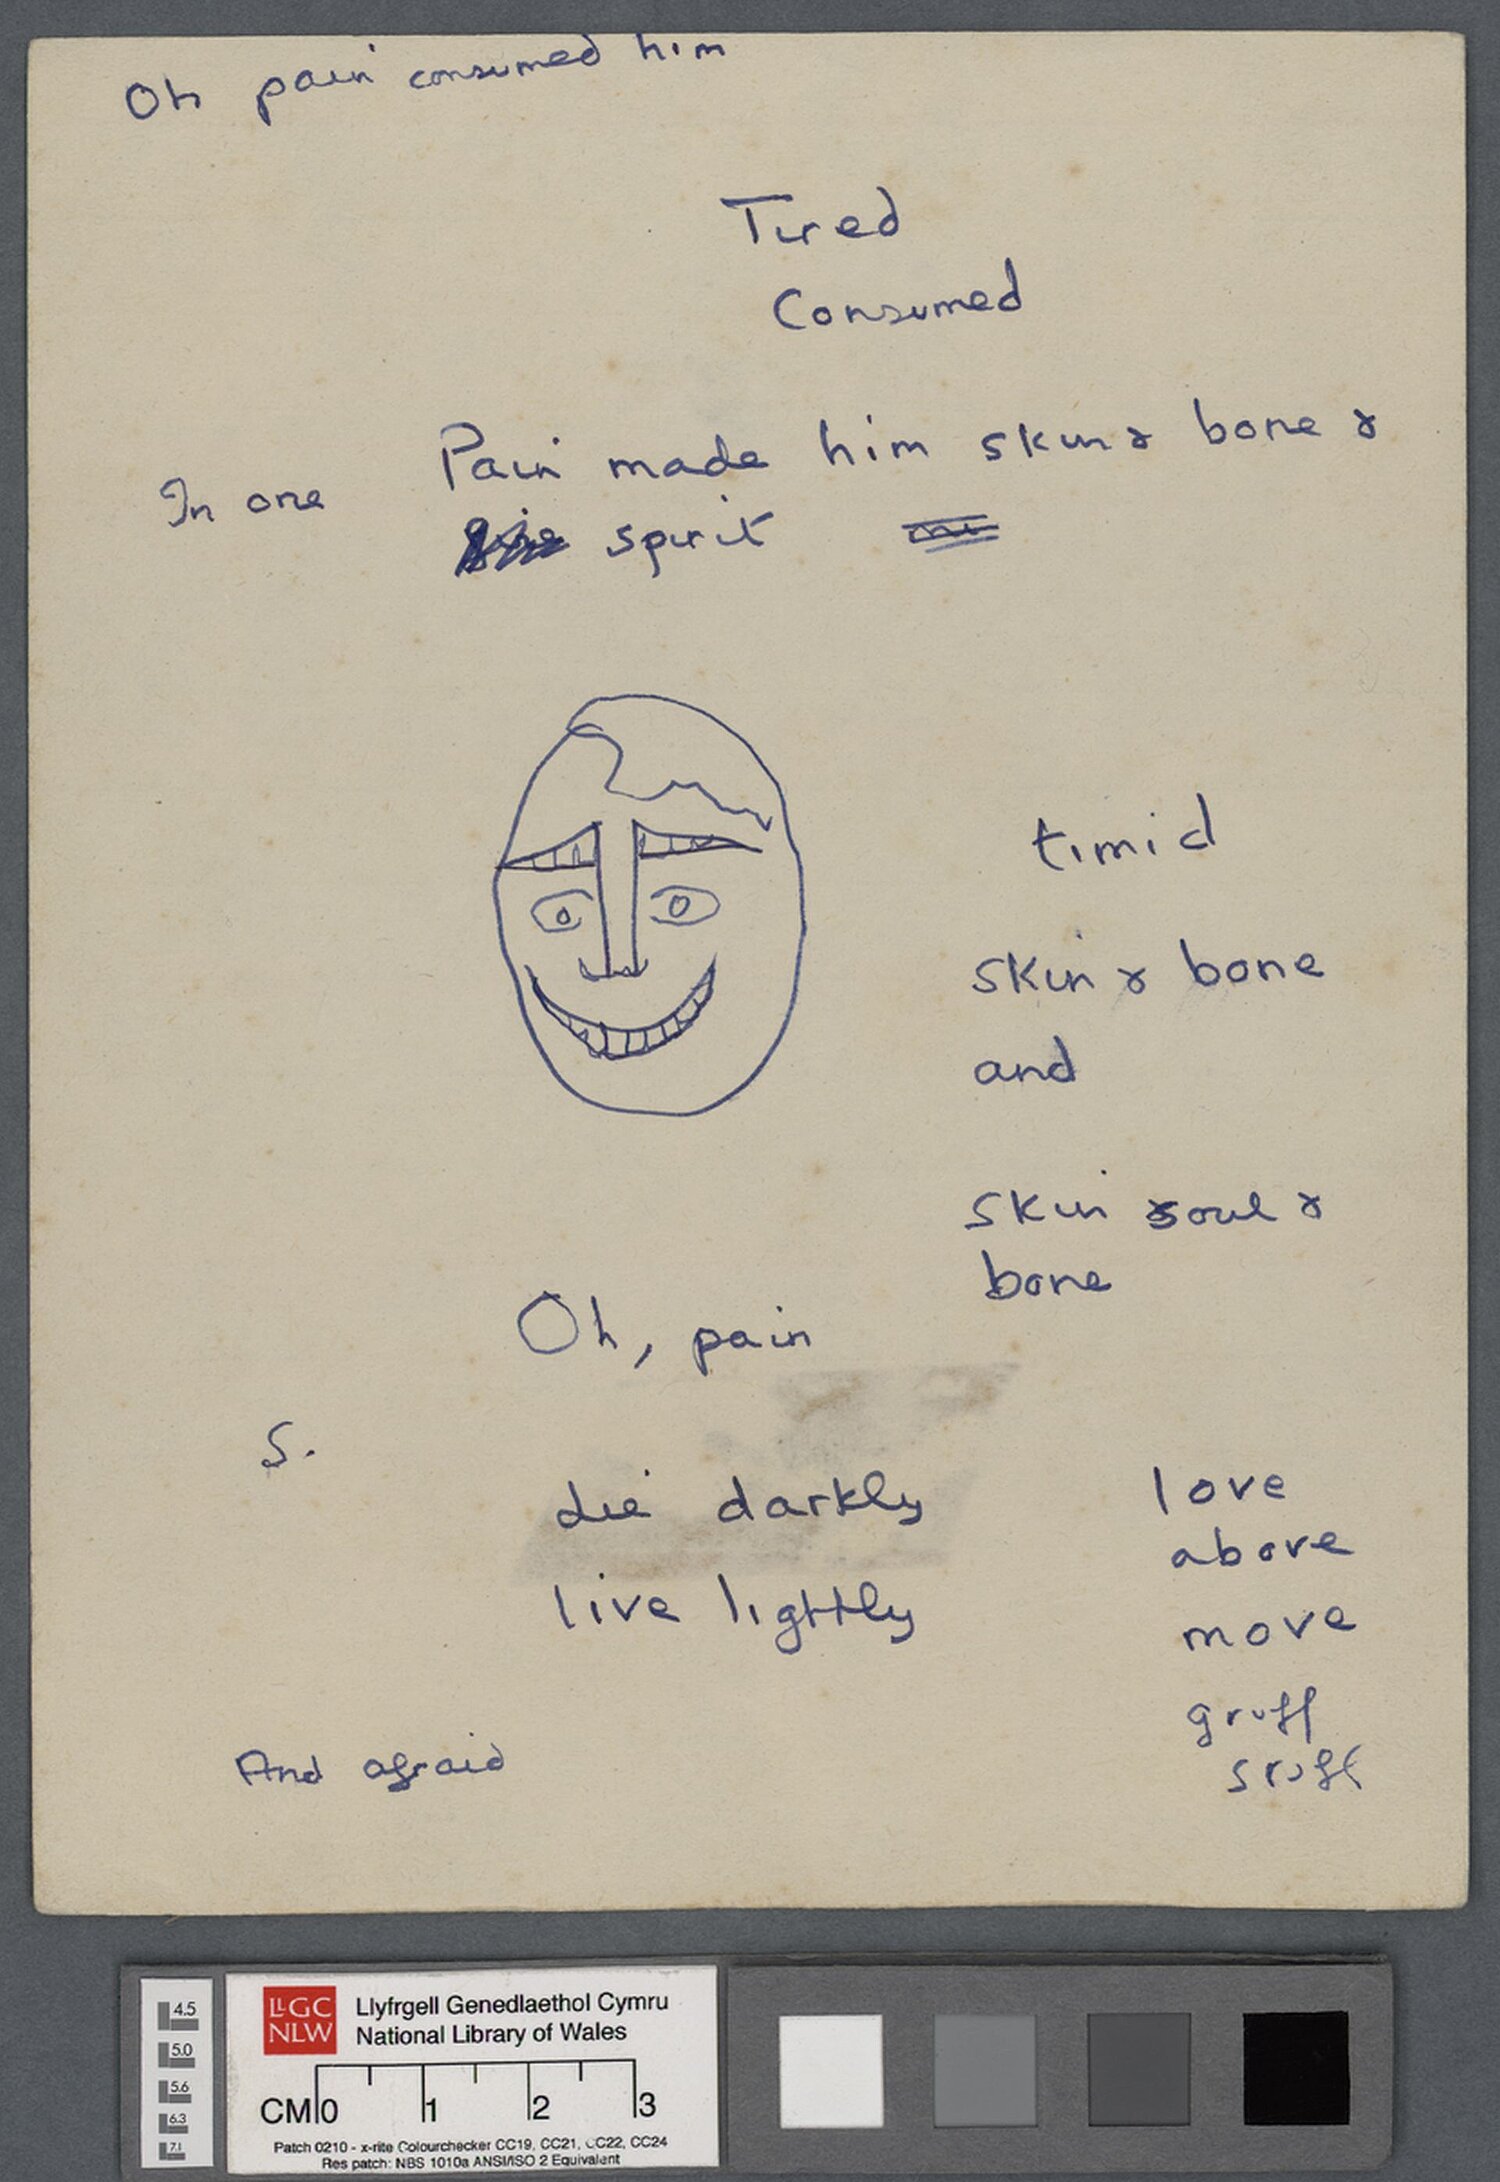 Oh pain consumed him
Tired
Consumed
Pain made him skin & bone &
In one
spirit
timid
skin & bone
and
skin & soul &
bone
Oh, pain
S.
die darkly
live lightly
love
above
move
gruff
And afraid
4.5
5.0
5.6
6.3
7.1
LLGC
NLW
Llyfrgell Genedlaethol Cymru
National Library of Wales
CM 0 1 2 3
Patch 0210 - x-rite Colourchecker CC19, CC21, CC22, CC24
Res patch: NBS 1010a ANSI/ISO 2 Equivalent